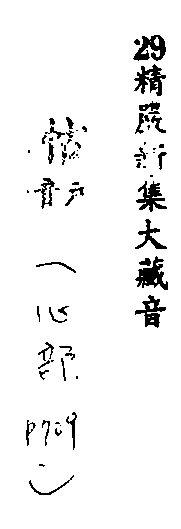 29精嚴新集大藏音
（心部 P709）